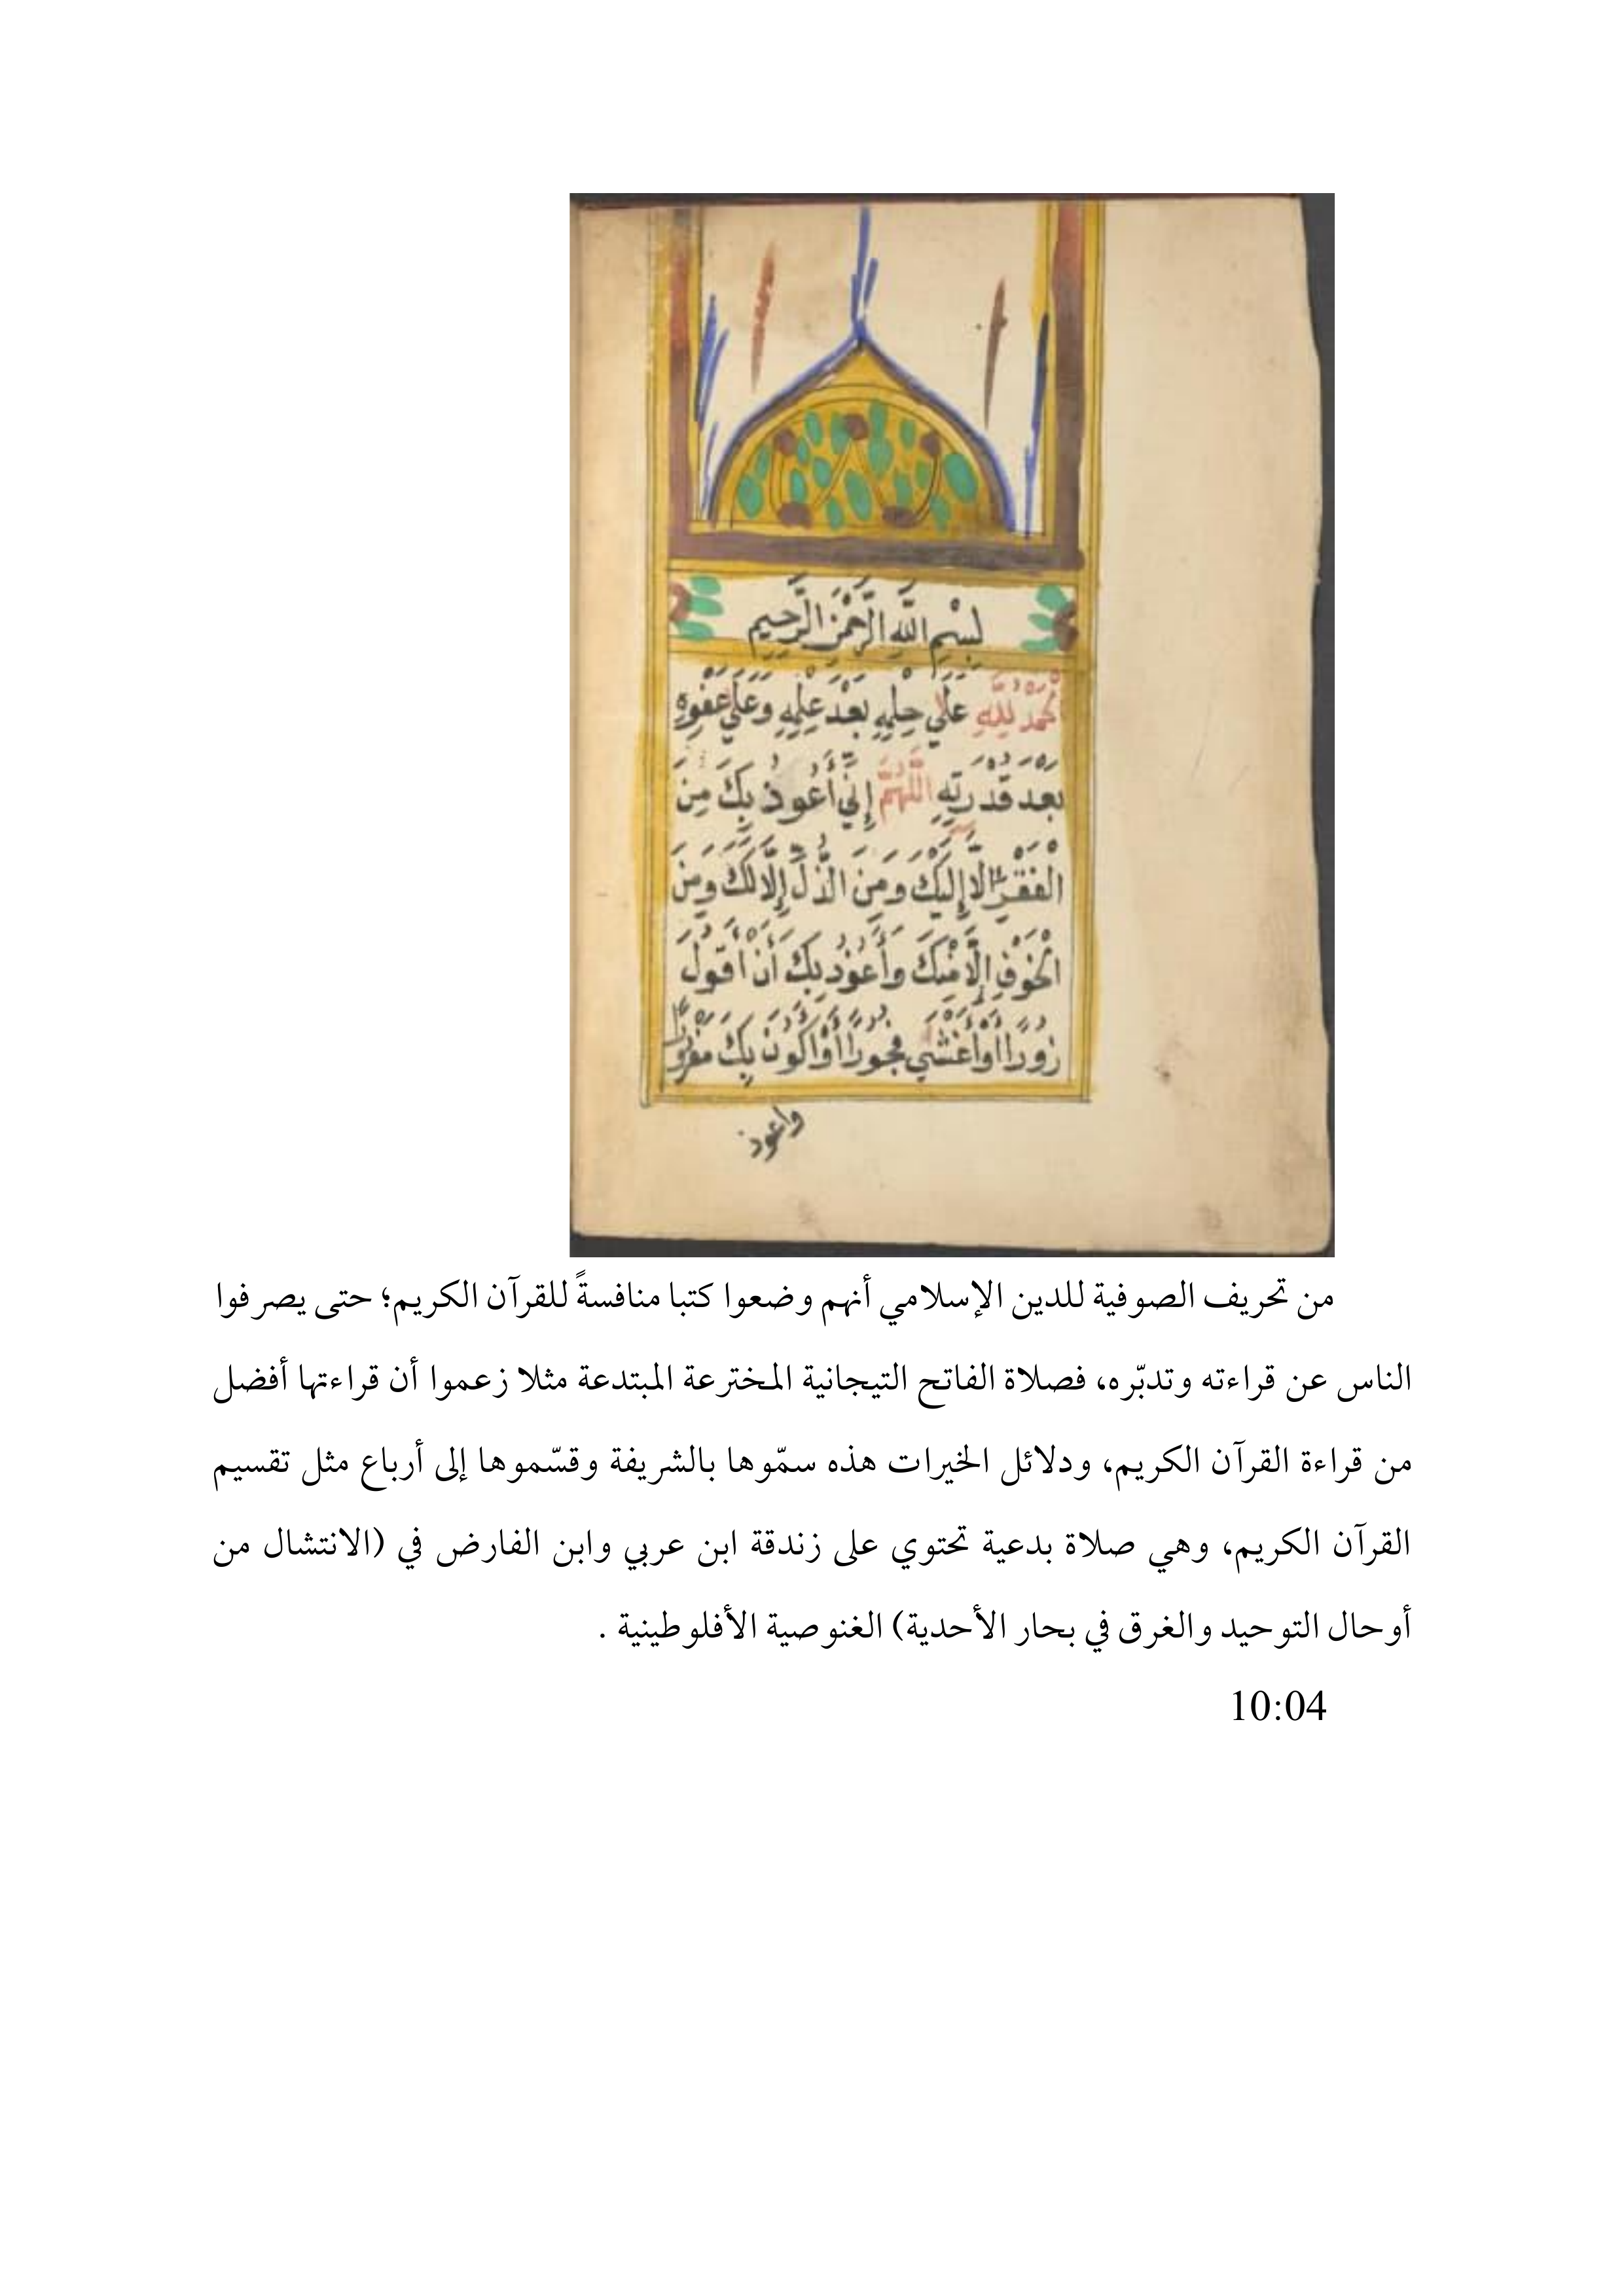 بِسْمِ اللَّهِ الرَّحْمَنِ الرَّحِيمِ
الْحَمْدُ لِلَّهِ عَلَى حِلْمِهِ بَعْدَ عِلْمِهِ وَعَلَى عَفْوِهِ
بَعْدَ قُدْرَتِهِ اللَّهُمَّ إِنِّي أَعُوذُ بِكَ مِنَ
الْفَقْرِ إِلَّا إِلَيْكَ وَمِنَ الذُّلِّ إِلَّا لَكَ وَمِنَ
الْخَوْفِ إِلَّا مِنْكَ وَأَعُوذُ بِكَ أَنْ أَقُولَ
زُورًا أَوْ أَغْشَى فُجُورًا أَوْ أَكُونَ بِكَ مَغْرُورًا
واعوذ
من تحريف الصوفية للدين الإسلامي أنهم وضعوا كتبا منافسةً للقرآن الكريم؛ حتى يصرفوا
الناس عن قراءته وتدبّره، فصلاة الفاتح التيجانية المخترعة المبتدعة مثلا زعموا أن قراءتها أفضل
من قراءة القرآن الكريم، ودلائل الخيرات هذه سمّوها بالشريفة وقسّموها إلى أرباع مثل تقسيم
القرآن الكريم، وهي صلاة بدعية تحتوي على زندقة ابن عربي وابن الفارض في (الانتشال من
أوحال التوحيد والغرق في بحار الأحدية) الغنوصية الأفلوطينية .
10:04